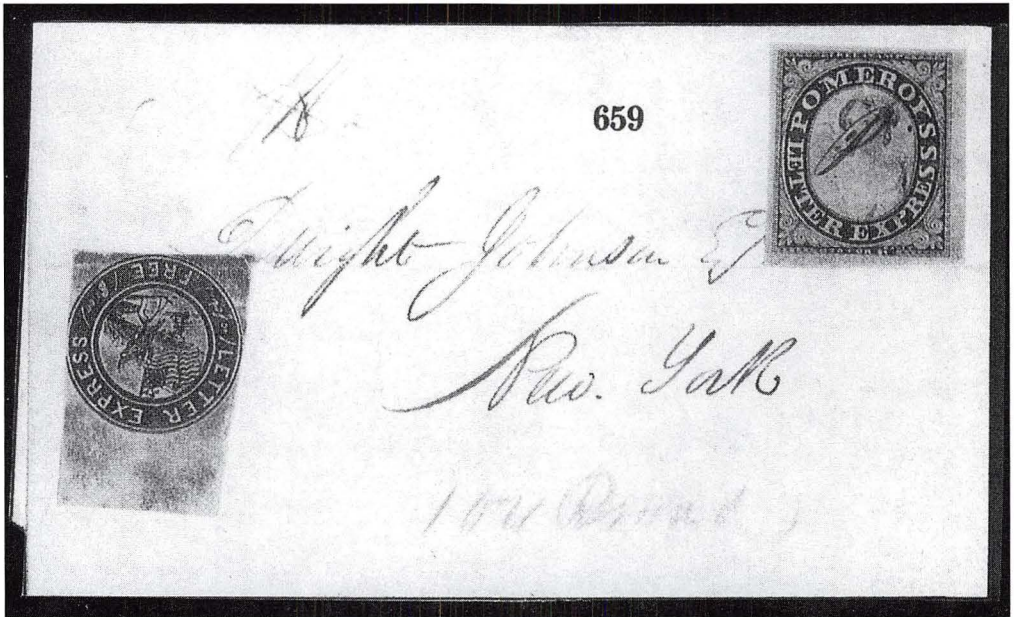 659
POMEROY'S LETTER EXPRESS
Dwight Johnson Eq
New. York
LETTER EXPRESS
FREE